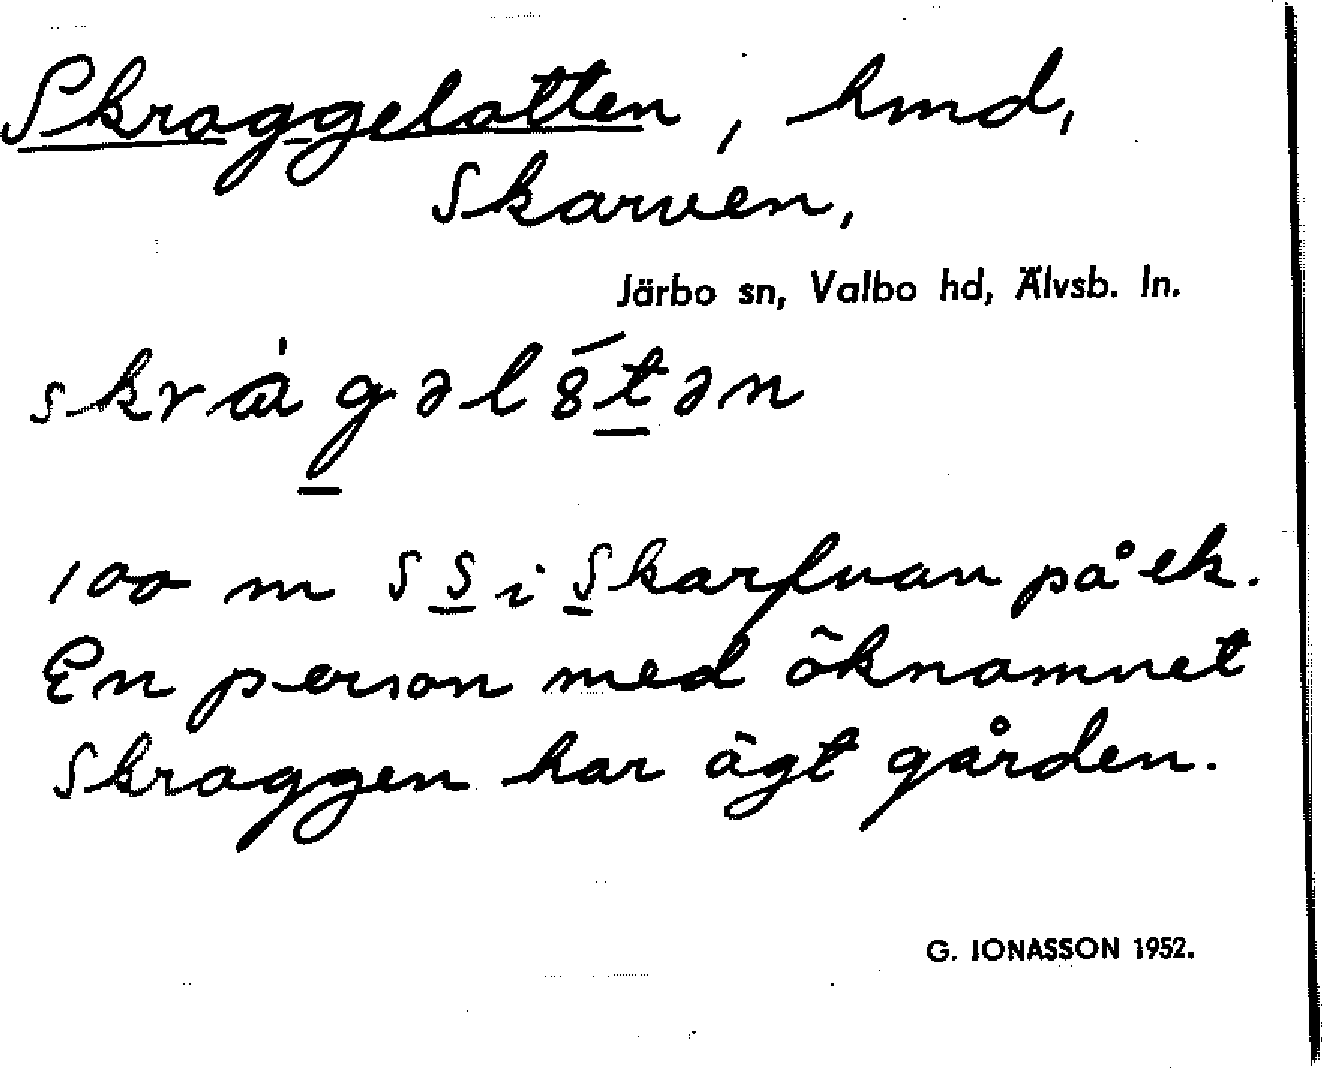 Skraggelotten, hmd,
Skarven,
Järbo sn, Valbo hd, Älvsb. ln.
100 m S S i Skarfvan på ek.
En person med öknamnet
Skraggen har ägt gården.
G. IONASSON 1952.